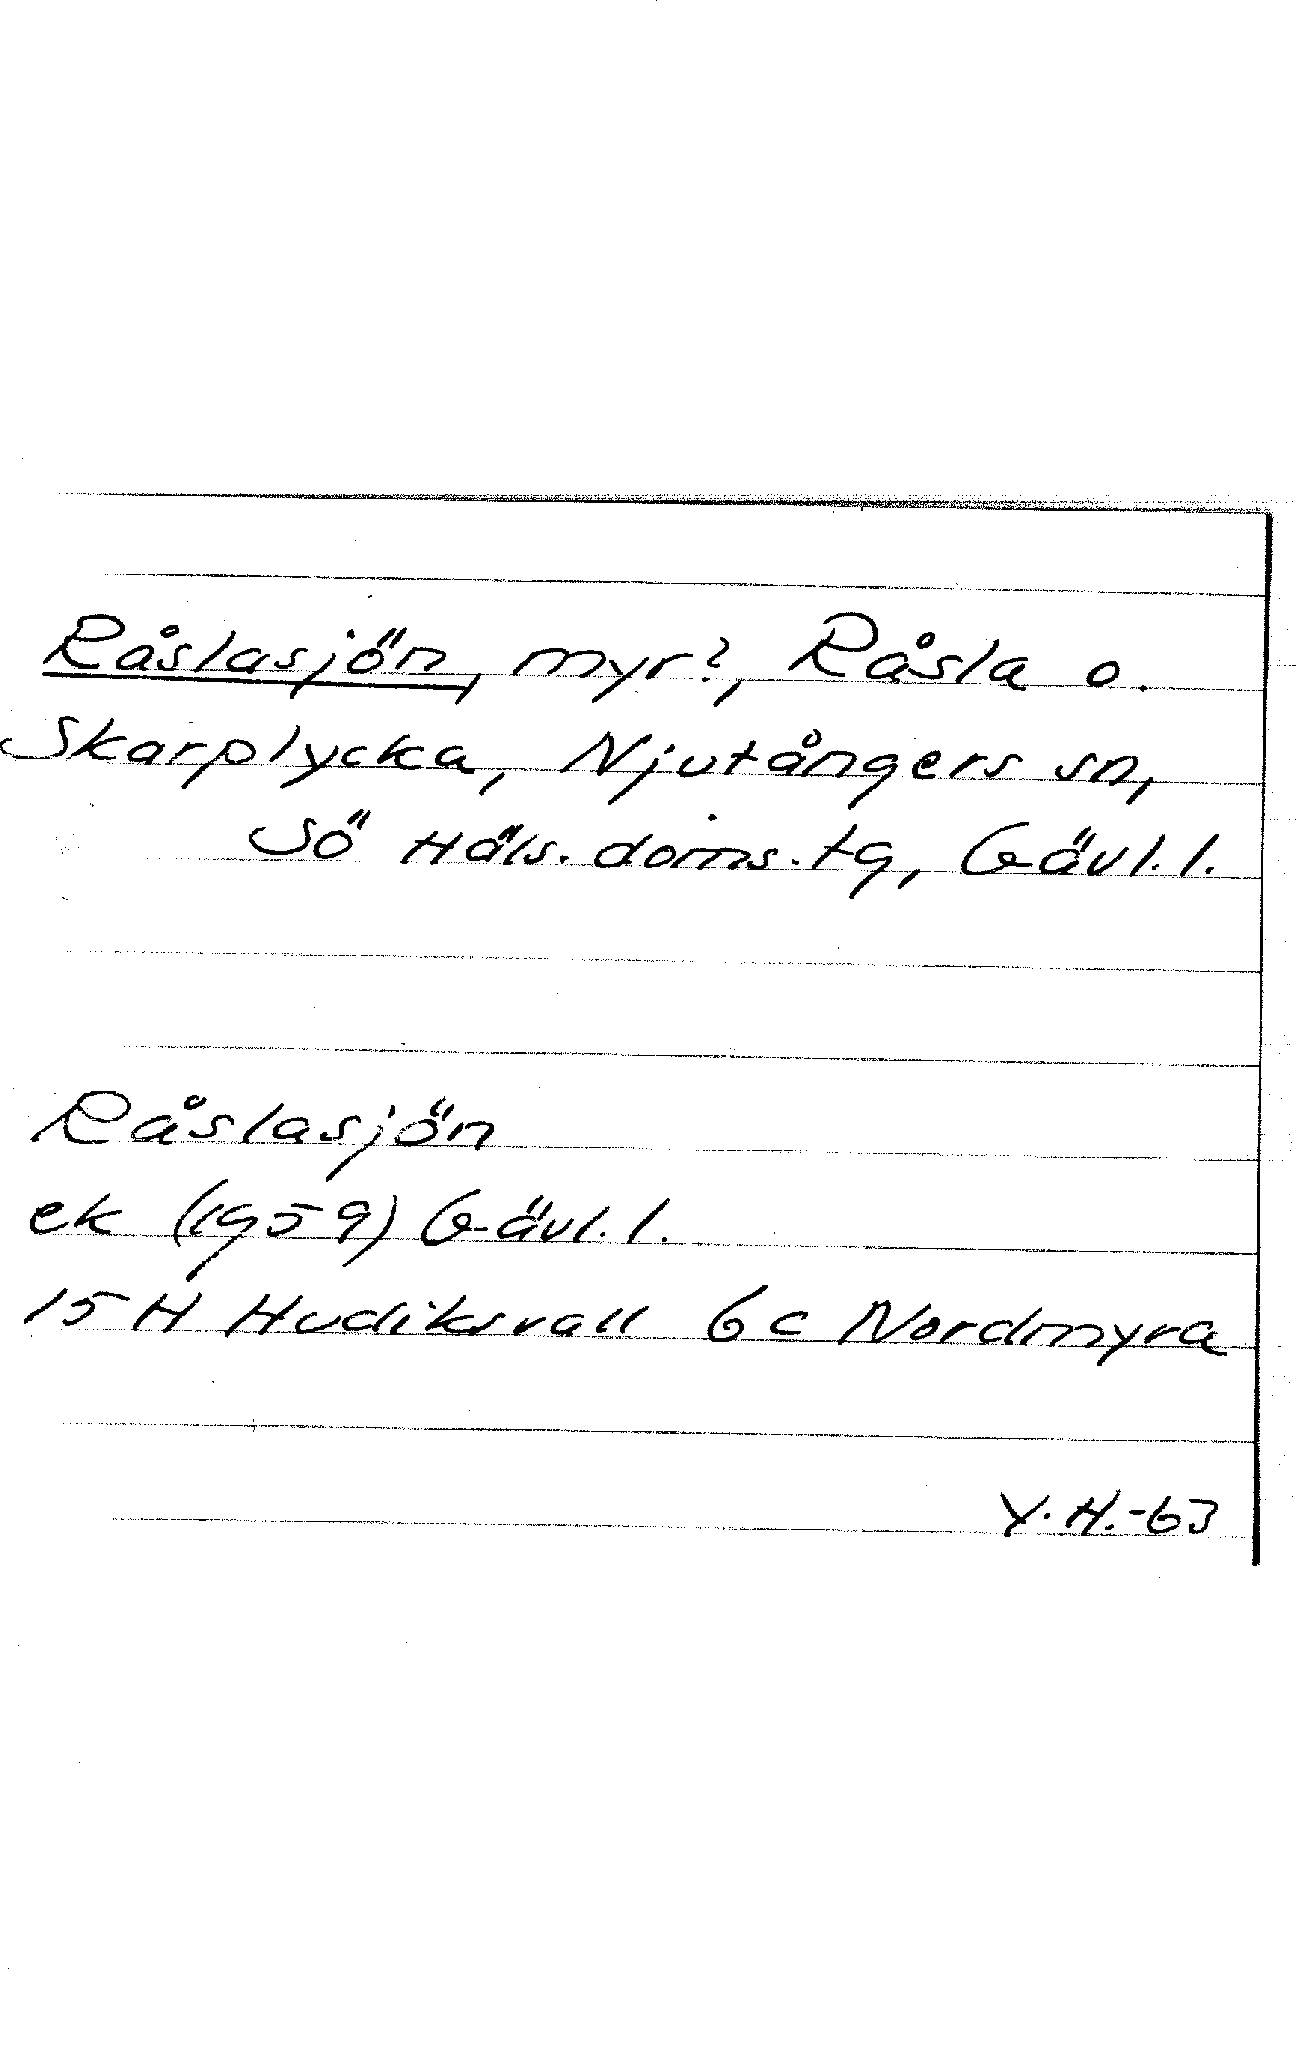 Råslasjön, myr?, Råsla o.
Skarplycka, Njutångers sn,
Sö Häls. doms. tg, Gävl. l.
Råslasjön
ek (1959) Gävl. l.
15 H Hudiksvall 6c Nordmyra
Y. H. -63